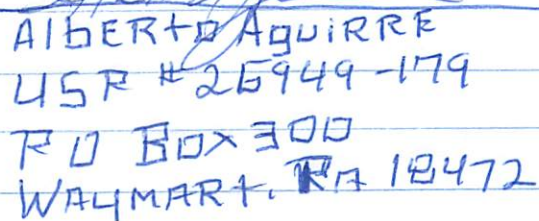 AlbERto AguiRRE
USP #26949-179
PO Box 300
WAYMARt. PA 18472